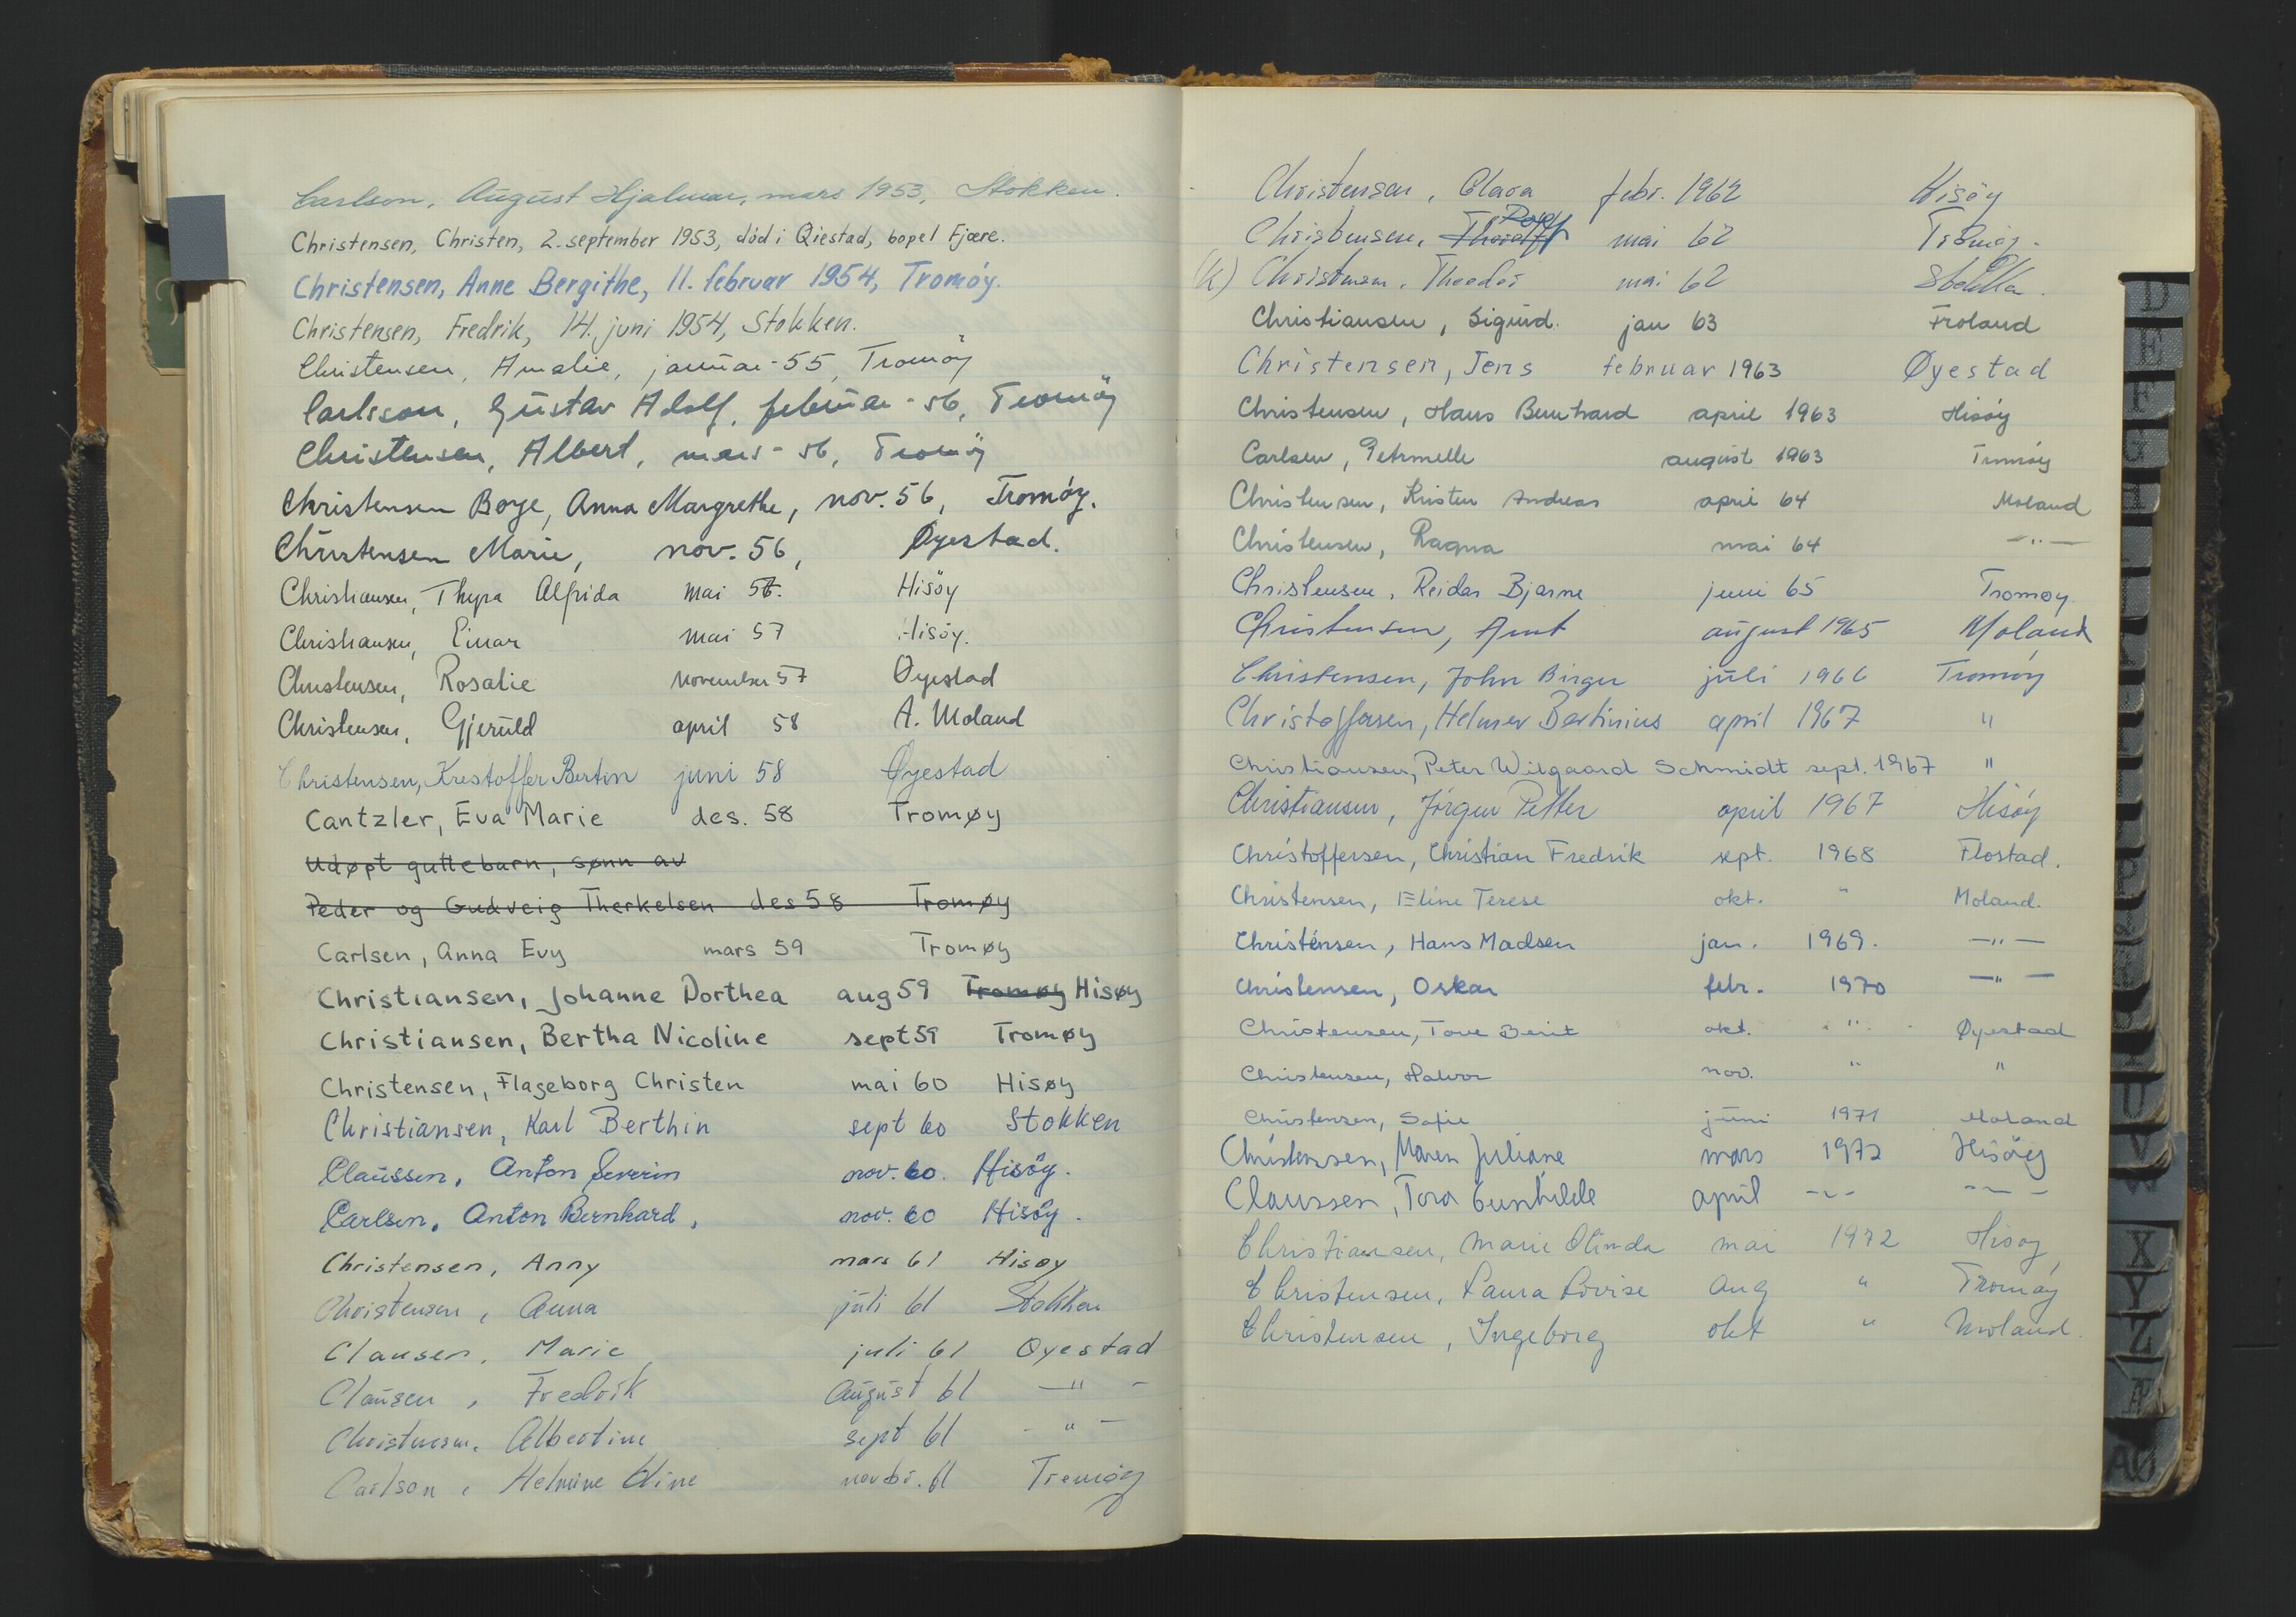 Carlson, August Hjalmar, mars 1953, Stokken.
Christensen, Christen, 2. september 1953, död i Øiestad, bopel Fjære.
Christensen, Anne Bergithe, 11. februar 1954, Tromøy.
Christensen, Fredrik, 14. juni 1954, Stokken.
Christensen, Amalie, januar-55, Tromöy
Carlsson, Gustav Adolf, februar-56, Tromöy
Christensen, Albert, mars-56, Tromöy
Christensen Boye, Anna Margrethe, nov. 56, Tromøy.
Christensen Marie, nov. 56, Øyestad.
Christiansen, Thyra Alfrida mai 56. Hisöy
Christiansen, Einar mai 57 Hisöy.
Christensen, Rosalie november 57 Øyestad
Christensen, Gjeruld april 58 A. Moland
Christensen, Krestoffer Bertin juni 58 Øyestad
Cantzler, Eva Marie des. 58 Tromøy
Udøpt guttebarn, sønn av
Peder og Gudveig Therkelsen des 58 Tromøy
Carlsen, Anna Evy mars 59 Tromøy
Christiansen, Johanne Dorthea aug 59 Tromøy Hisøy
Christiansen, Bertha Nicoline sept 59 Tromøy
Christensen, Flageborg Christen mai 60 Hisøy
Christiansen, Karl Berthin sept 60 Stokken
Claussen, Anton Severin nov. 60. Hisöy.
Carlsen, Anton Bernhard, nov. 60 Hisöy.
Christensen, Anny mars 61 Hisøy
Christensen, Anna juli 61 Stokken
Clausen, Marie juli 61 Øyestad
Clausen, Fredrik August 61 —"—
Christensen, Albertine sept 61 -"-
Carlson, Helmine Eline novbr. 61 Tromøy
Christensen, Clara febr. 1962 Hisöy
Christensen, mai 62 Tromøy.
(K) Christensen, Theodor mai 62
Christiansen, Sigurd. jan 63 Froland
Christensen, Jens februar 1963 Øyestad
Christensen, Hans Bernhard april 1963 Hisöy
Carlsen, Petrnelle august 1963 Tromøy
Christensen, Kristen Andreas april 64 Moland
Christensen, Ragna mai 64 —"—
Christensen, Reidar Bjarne juni 65 Tromøy.
Christensen, Arnt august 1965 Moland
Christensen, John Birger juli 1966 Tromöy
Christoffersen, Helmer Bertinius april 1967 "
Christiansen, Peter Wilgaard Schmidt sept. 1967 "
Christiansen, Jörgen Petter april 1967 Hisöy
Christoffersen, Christian Fredrik sept. 1968 Flostad.
Christensen, Eline Terese okt. " Moland.
Christensen, Hans Madsen jan. 1969. —"—
Christensen, Oskar febr. 1970 —"—
Christensen, Tove Berit okt. " Øyestad
Christensen, Halvor nov. " "
Christensen, Sofie juni 1971 Moland
Christensen, Maren Juliane mars 1972 Hisöy
Claussen, Tora Gunhilde april -"- -"-
Christiansen, Marie Olinda mai 1972 Hisøy
Christensen, Laura Lovise aug " Tromøy
Christensen, Ingeborg okt " Moland.
D
E
F
G
U
V
W
X
Y
Z
Æ
AØ